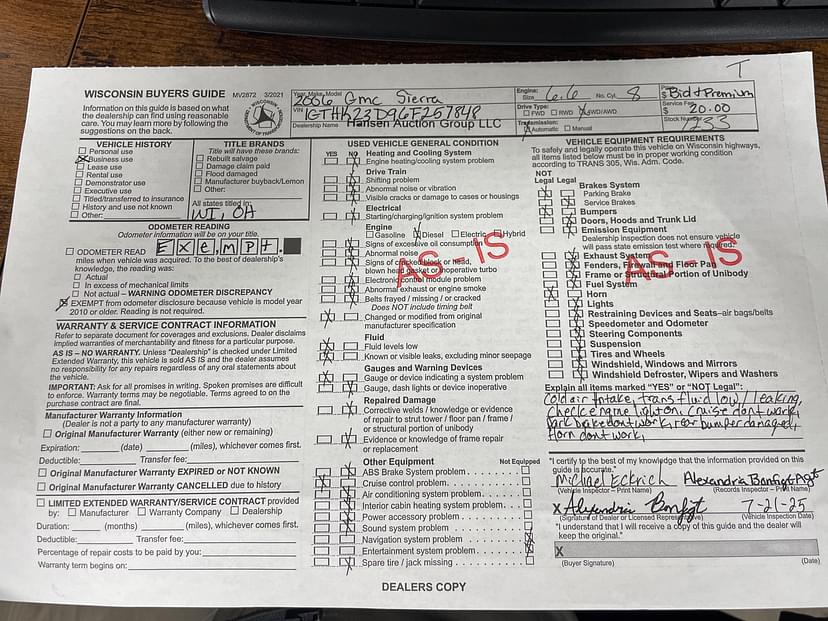 T
WISCONSIN BUYERS GUIDE MV2872 3/2021
Information on this guide is based on what
the dealership can find using reasonable
care. You may learn more by following the
suggestions on the back.
Year, Make, Model
2006 Gmc Sierra
VIN 1GTHK23D96F257848
Dealership Name Hansen Auction Group LLC
Engine:
Size 6.6 No. Cyl. 8
Drive Type:
FWD RWD 4WD/AWD
Transmission:
Automatic Manual
$ Bid + Premium
Service Fee
$ 20.00
Stock Number
VEHICLE HISTORY
Personal use
Business use
Lease use
Rental use
Demonstrator use
Executive use
Titled/transferred to insurance
History and use not known
Other:
TITLE BRANDS
Title will have these brands:
Rebuilt salvage
Damage claim paid
Flood damaged
Manufacturer buyback/Lemon
Other:
All states titled in:
WI, OH
ODOMETER READING
Odometer information will be on your title.
ODOMETER READ Exempt.
miles when vehicle was acquired. To the best of dealership's
knowledge, the reading was:
Actual
In excess of mechanical limits
Not actual – WARNING ODOMETER DISCREPANCY
EXEMPT from odometer disclosure because vehicle is model year
2010 or older. Reading is not required.
WARRANTY & SERVICE CONTRACT INFORMATION
Refer to separate document for coverages and exclusions. Dealer disclaims
implied warranties of merchantability and fitness for a particular purpose.
AS IS – NO WARRANTY. Unless "Dealership" is checked under Limited
Extended Warranty, this vehicle is sold AS IS and the dealer assumes
no responsibility for any repairs regardless of any oral statements about
the vehicle.
IMPORTANT: Ask for all promises in writing. Spoken promises are difficult
to enforce. Warranty terms may be negotiable. Terms agreed to on the
purchase contract are final.
Manufacturer Warranty Information
(Dealer is not a party to any manufacturer warranty)
Original Manufacturer Warranty (either new or remaining)
Expiration: (date) (miles), whichever comes first.
Deductible: Transfer fee:
Original Manufacturer Warranty EXPIRED or NOT KNOWN
Original Manufacturer Warranty CANCELLED due to history
LIMITED EXTENDED WARRANTY/SERVICE CONTRACT provided
by: Manufacturer Warranty Company Dealership
Duration: (months) (miles), whichever comes first.
Deductible: Transfer fee:
Percentage of repair costs to be paid by you:
Warranty term begins on:
USED VEHICLE GENERAL CONDITION
YES NO Heating and Cooling System
Engine heating/cooling system problem
Drive Train
Shifting problem
Abnormal noise or vibration
Visible cracks or damage to cases or housings
Electrical
Starting/charging/ignition system problem
Engine
Gasoline Diesel Electric Hybrid
Signs of excessive oil consumption
Abnormal noise
Signs of cracked block or head,
blown head gasket or inoperative turbo
Electronic control module problem
Abnormal exhaust or engine smoke
Belts frayed / missing / or cracked
Does NOT include timing belt
Changed or modified from original
manufacturer specification
Fluid
Fluid levels low
Known or visible leaks, excluding minor seepage
Gauges and Warning Devices
Gauge or device indicating a system problem
Gauge, dash lights or device inoperative
Repaired Damage
Corrective welds / knowledge or evidence
of repair to strut tower / floor pan / frame /
or structural portion of unibody
Evidence or knowledge of frame repair
or replacement
Other Equipment Not Equipped
ABS Brake System problem
Cruise control problem
Air conditioning system problem
Interior cabin heating system problem
Power accessory problem
Sound system problem
Navigation system problem
Entertainment system problem
Spare tire / jack missing
AS - IS
DEALERS COPY
VEHICLE EQUIPMENT REQUIREMENTS
To safely and legally operate this vehicle on Wisconsin highways,
all items listed below must be in proper working condition
according to TRANS 305, Wis. Adm. Code.
NOT
Legal Legal
Brakes System
Parking Brake
Service Brakes
Bumpers
Doors, Hoods and Trunk Lid
Emission Equipment
Dealership inspection does not ensure vehicle
will pass state emission test where required.
Exhaust System
Fenders, Firewall and Floor Pan
Frame or Structural Portion of Unibody
Fuel System
Horn
Lights
Restraining Devices and Seats–air bags/belts
Speedometer and Odometer
Steering Components
Suspension
Tires and Wheels
Windshield, Windows and Mirrors
Windshield Defroster, Wipers and Washers
AS - IS
Explain all items marked "YES" or "NOT Legal":
Cold air intake, trans fluid low / leaking,
check engine light on, cruise dont work,
park brake dont work, rear bumper damaged,
Horn dont work,
"I certify to the best of my knowledge that the information provided on this
guide is accurate."
Michael Eckrich
(Vehicle Inspector – Print Name) (Records Inspector – Print Name)
X Alexandria 7-21-25
(Signature of Dealer or Licensed Representative) (Vehicle Inspection Date)
"I understand that I will receive a copy of this guide and the dealer will
keep the original."
X
(Buyer Signature) (Date)